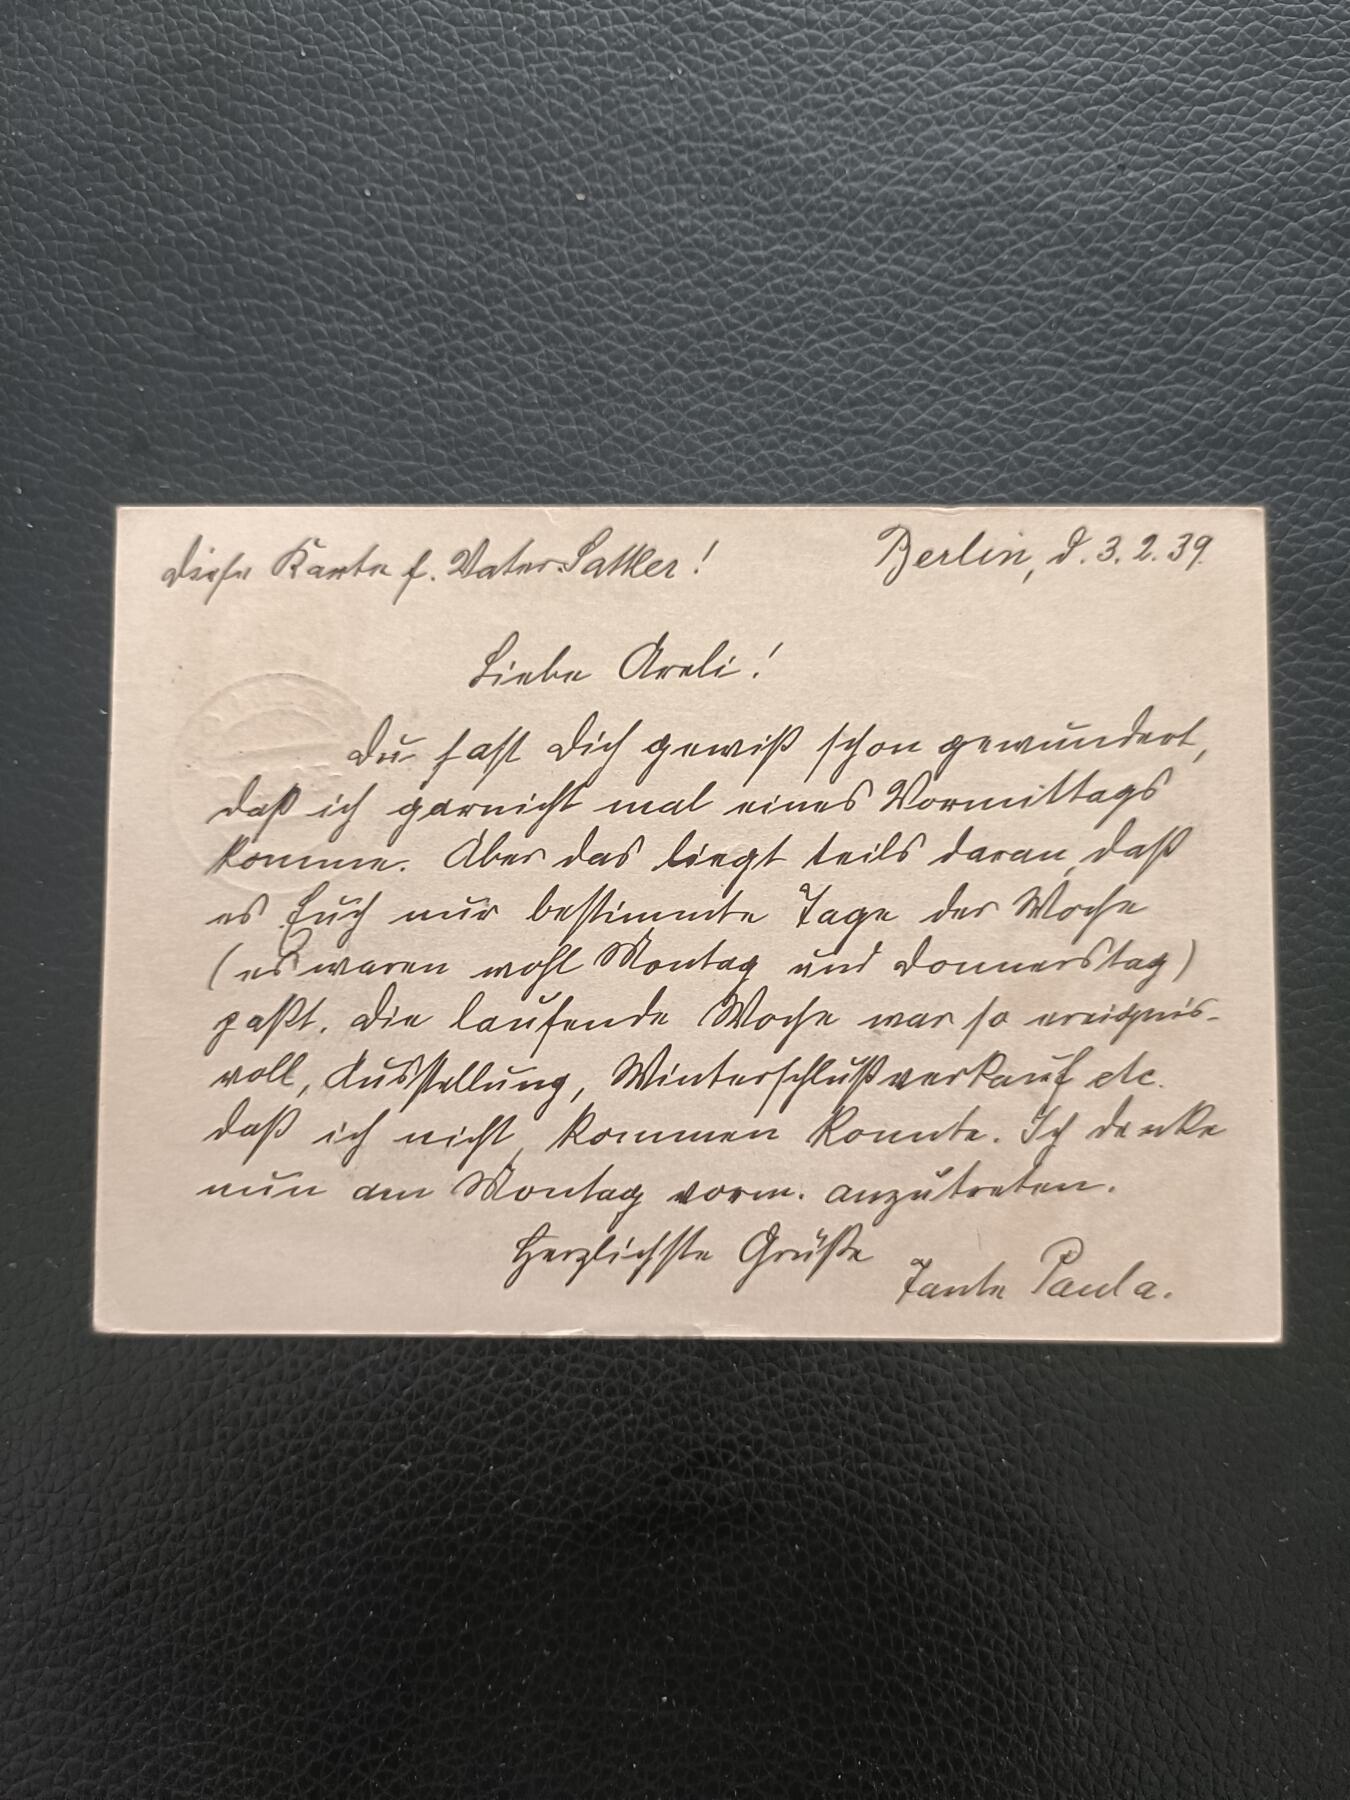 Diese Karte f. Vater Sattler! Berlin, d. 3.2.39.
Liebe Areli!
Du hast Dich gewiß schon gewundert,
daß ich garnicht mal eines Vormittags
komme. Aber das liegt teils daran, daß
es Euch nur bestimmte Tage der Woche
(es waren wohl Montag und Donnerstag)
paßt. Die laufende Woche war so ereignis-
voll, Ausstellung, Winterschlußverkauf etc.
daß ich nicht kommen konnte. Ich denke
nun am Montag vorm. anzutreten.
Herzlichste Grüße
Tante Paula.